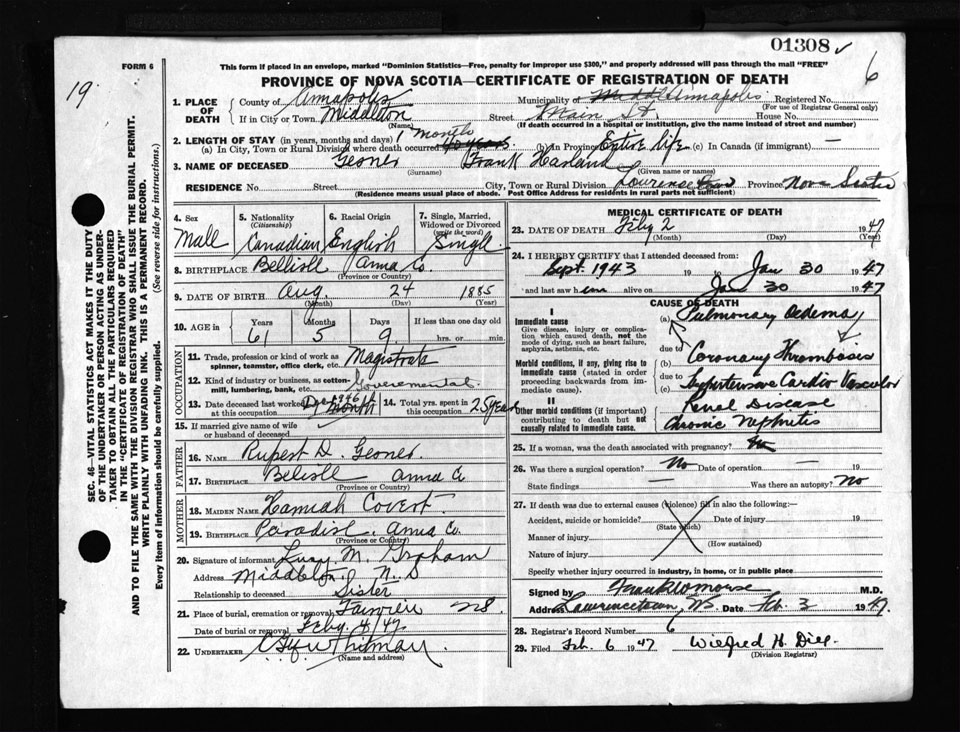 01308 ✓
FORM 6
6
19.
This form if placed in an envelope, marked "Dominion Statistics—Free, penalty for improper use $300," and properly addressed will pass through the mail "FREE"
PROVINCE OF NOVA SCOTIA—CERTIFICATE OF REGISTRATION OF DEATH
1. PLACE OF DEATH County of Annapolis Municipality of Annapolis Registered No.
(For use of Registrar General only)
If in City or Town Middleton Street Main St. House No.
(Name) (If death occurred in a hospital or institution, give the name instead of street and number)
2. LENGTH OF STAY (in years, months and days) 1 Month
(a) In City, Town or Rural Division where death occurred (b) in Province Entire life (c) In Canada (if immigrant) —
3. NAME OF DECEASED Gesner Frank Harland
(Surname) (Given name or names)
RESIDENCE No. Street City, Town or Rural Division Lawrencetown Province Nova Scotia
(Residence means usual place of abode. Post Office Address for residents in rural parts not sufficient)
4. Sex Male
5. Nationality (Citizenship) Canadian
6. Racial Origin English
7. Single, Married, Widowed or Divorced (write the word) Single
8. BIRTHPLACE Bellisle Anna Co.
(Province or Country)
9. DATE OF BIRTH Aug. 24 1885
(Month) (Day) (Year)
10. AGE in Years Months Days If less than one day old
61 5 9 hrs. or min.
OCCUPATION
11. Trade, profession or kind of work as spinner, teamster, office clerk, etc. Magistrate
12. Kind of industry or business, as cotton-mill, lumbering, bank, etc. Governmental
13. Date deceased last worked at this occupation Dec 1946
14. Total years spent in this occupation 25 years
15. If married give name of wife or husband of deceased
FATHER
16. NAME Rupert D. Gesner
17. BIRTHPLACE Bellisle Anna Co
(Province or Country)
MOTHER
18. MAIDEN NAME Hannah Covert
19. BIRTHPLACE Paradise Anna Co.
(Province or Country)
20. Signature of informant Lucy M. Graham
Address Middleton, N.S
Relationship to deceased Sister
21. Place of burial, cremation or removal Fairview NS
Date of burial or removal Feby. 4/47
22. UNDERTAKER Whitman
(Name and address)
MEDICAL CERTIFICATE OF DEATH
23. DATE OF DEATH Feby 2 1947
(Month) (Day) (Year)
24. I HEREBY CERTIFY that I attended deceased from:
Sept. 1943 19 to Jan 30 1947
and last saw him alive on Jan 30 1947
CAUSE OF DEATH
I
Immediate cause (a) Pulmonary Oedema
Give disease, injury or complication which caused death, not the mode of dying, such as heart failure, asphyxia, asthenia, etc.
due to
Morbid conditions, if any, giving rise to immediate cause (stated in order proceeding backwards from immediate cause).
(b) Coronary Thrombosis
due to
(c) Hypertensive Cardio Vascular
II
Other morbid conditions (if important) contributing to death but not causally related to immediate cause.
Renal Disease
Chronic Nephritis
25. If a woman, was the death associated with pregnancy?
26. Was there a surgical operation? No Date of operation — 19
State findings — Was there an autopsy? No
27. If death was due to external causes (violence) fill in also the following:
Accident, suicide or homicide? Date of injury 19
(State which)
Manner of injury
(How sustained)
Nature of injury
Specify whether injury occurred in industry, in home, or in public place
Signed by Frank Morse M.D.
Address Lawrencetown, NS. Date Feb. 3 1947.
28. Registrar's Record Number 6
29. Filed Feb. 6 1947 Wilfred H. Dill.
(Division Registrar)
SEC. 46—VITAL STATISTICS ACT MAKES IT THE DUTY
OF THE UNDERTAKER OR PERSON ACTING AS UNDER-
TAKER TO OBTAIN ALL THE PARTICULARS REQUIRED
IN THE "CERTIFICATE OF REGISTRATION OF DEATH"
AND TO FILE THE SAME WITH THE DIVISION REGISTRAR WHO SHALL ISSUE THE BURIAL PERMIT.
WRITE PLAINLY WITH UNFADING INK. THIS IS A PERMANENT RECORD.
Every item of information should be carefully supplied. (See reverse side for instructions).